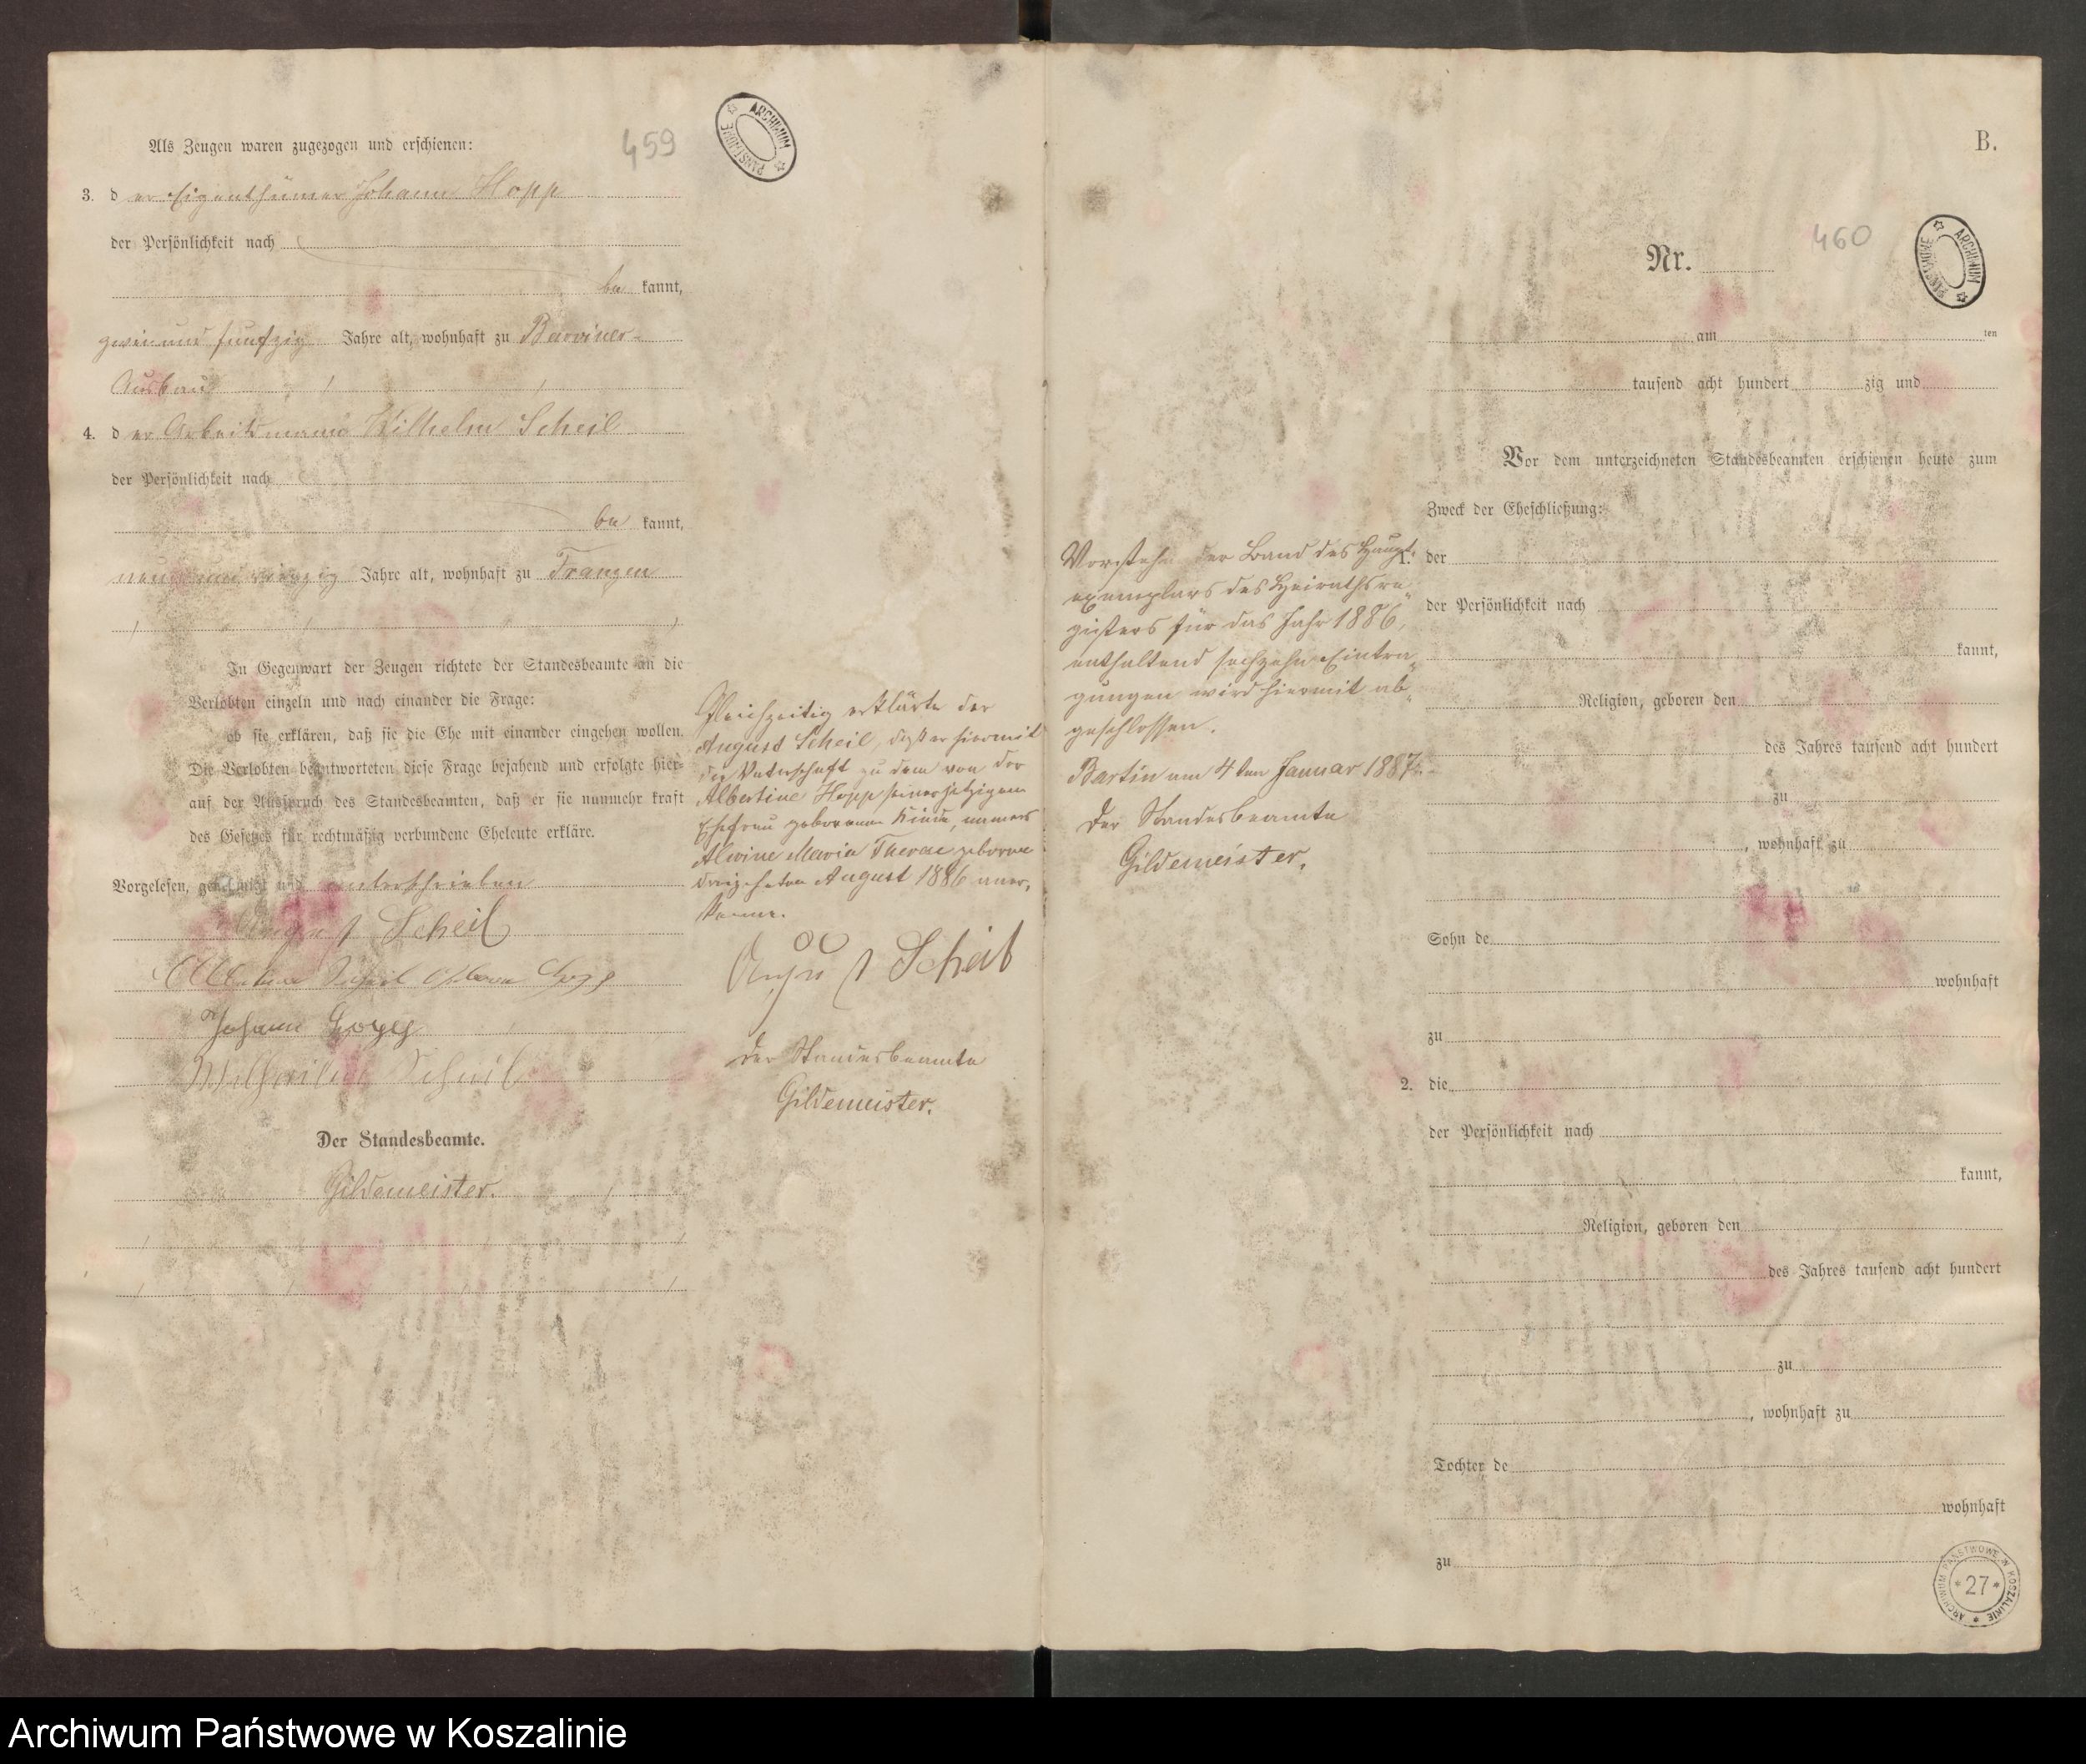 459
ARCHIWUM PAŃSTWOWE
Als Zeugen waren zugezogen und erschienen:
3. der Eigenthümer Johann Hopp
der Persönlichkeit nach
be kannt,
zwei und funfzig Jahre alt, wohnhaft zu Barviner-
Ausbau
4. der Arbeitsmann Wilhelm Scheil
der Persönlichkeit nach
be kannt,
neun und vierzig Jahre alt, wohnhaft zu Franzen
In Gegenwart der Zeugen richtete der Standesbeamte an die
Verlobten einzeln und nach einander die Frage:
ob sie erklären, daß sie die Ehe mit einander eingehen wollen.
Die Verlobten beantworteten diese Frage bejahend und erfolgte hier-
auf der Ausspruch des Standesbeamten, daß er sie nunmehr kraft
des Gesetzes für rechtmäßig verbundene Eheleute erkläre.
Vorgelesen, genehmigt und unterschrieben
August Scheil
Albertine Scheil geborne Hopp
Johann Hopp
Wilhelm Scheil
Der Standesbeamte.
Gildemeister.
Gleichzeitig erklärte der
August Scheil, daß er hiermit
die Vaterschaft zu dem von der
Albertine Hopp seiner jetzigen
Ehefrau geborenen Kinde, namens
Alwine Maria Therese geboren
dreizehnten August 1886 aner„
kenne.
August Scheil
Der Standesbeamte
Gildemeister.
B.
460
ARCHIWUM PAŃSTWOWE
Nr.
am ten
tausend acht hundert zig und
Vor dem unterzeichneten Standesbeamten erschienen heute zum
Zweck der Eheschließung:
1. der
der Persönlichkeit nach
kannt,
Religion, geboren den
des Jahres tausend acht hundert
zu
, wohnhaft zu
Sohn de
wohnhaft
zu
2. die
der Persönlichkeit nach
kannt,
Religion, geboren den
des Jahres tausend acht hundert
zu
, wohnhaft zu
Tochter de
wohnhaft
zu
Vorstehender Band des Haupt„
exemplars des Heirathsre„
gisters für das Jahr 1886,
enthaltend sechzehn Eintra„
gungen wird hiermit ab„
geschlossen.
Bartin am 4ten Januar 1887.
Der Standesbeamte
Gildemeister.
ARCHIWUM PAŃSTWOWE W KOSZALINIE
* 27 *
Archiwum Państwowe w Koszalinie